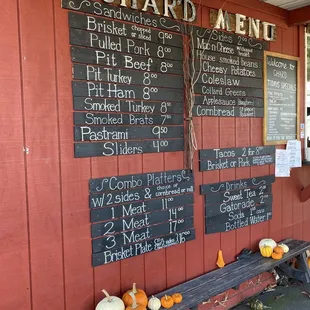 CHARD MENU
Sandwiches
Brisket chopped or sliced 9.50
Pulled Pork 8.00
Pit Beef 8.00
Pit Turkey 8.00
Pit Ham 8.00
Smoked Turkey 8.00
Smoked Brats 7.00
Pastrami 9.50
Sliders 4.00
Sides 2.00
Mac N Cheese
House smoked Beans
Cheesy Potatoes
Coleslaw
Collard Greens
Applesauce
Cornbread
Welcome to
Tacos 2 for 8.50
Brisket or Pork
Combo Platters
w/ 2 sides & choice of cornbread or roll
1 Meat 11.00
2 Meat 14.00
3 Meat 17.00
Brisket Plate 15.00
Drinks
Sweet Tea
Gatorade
Soda
Bottled Water